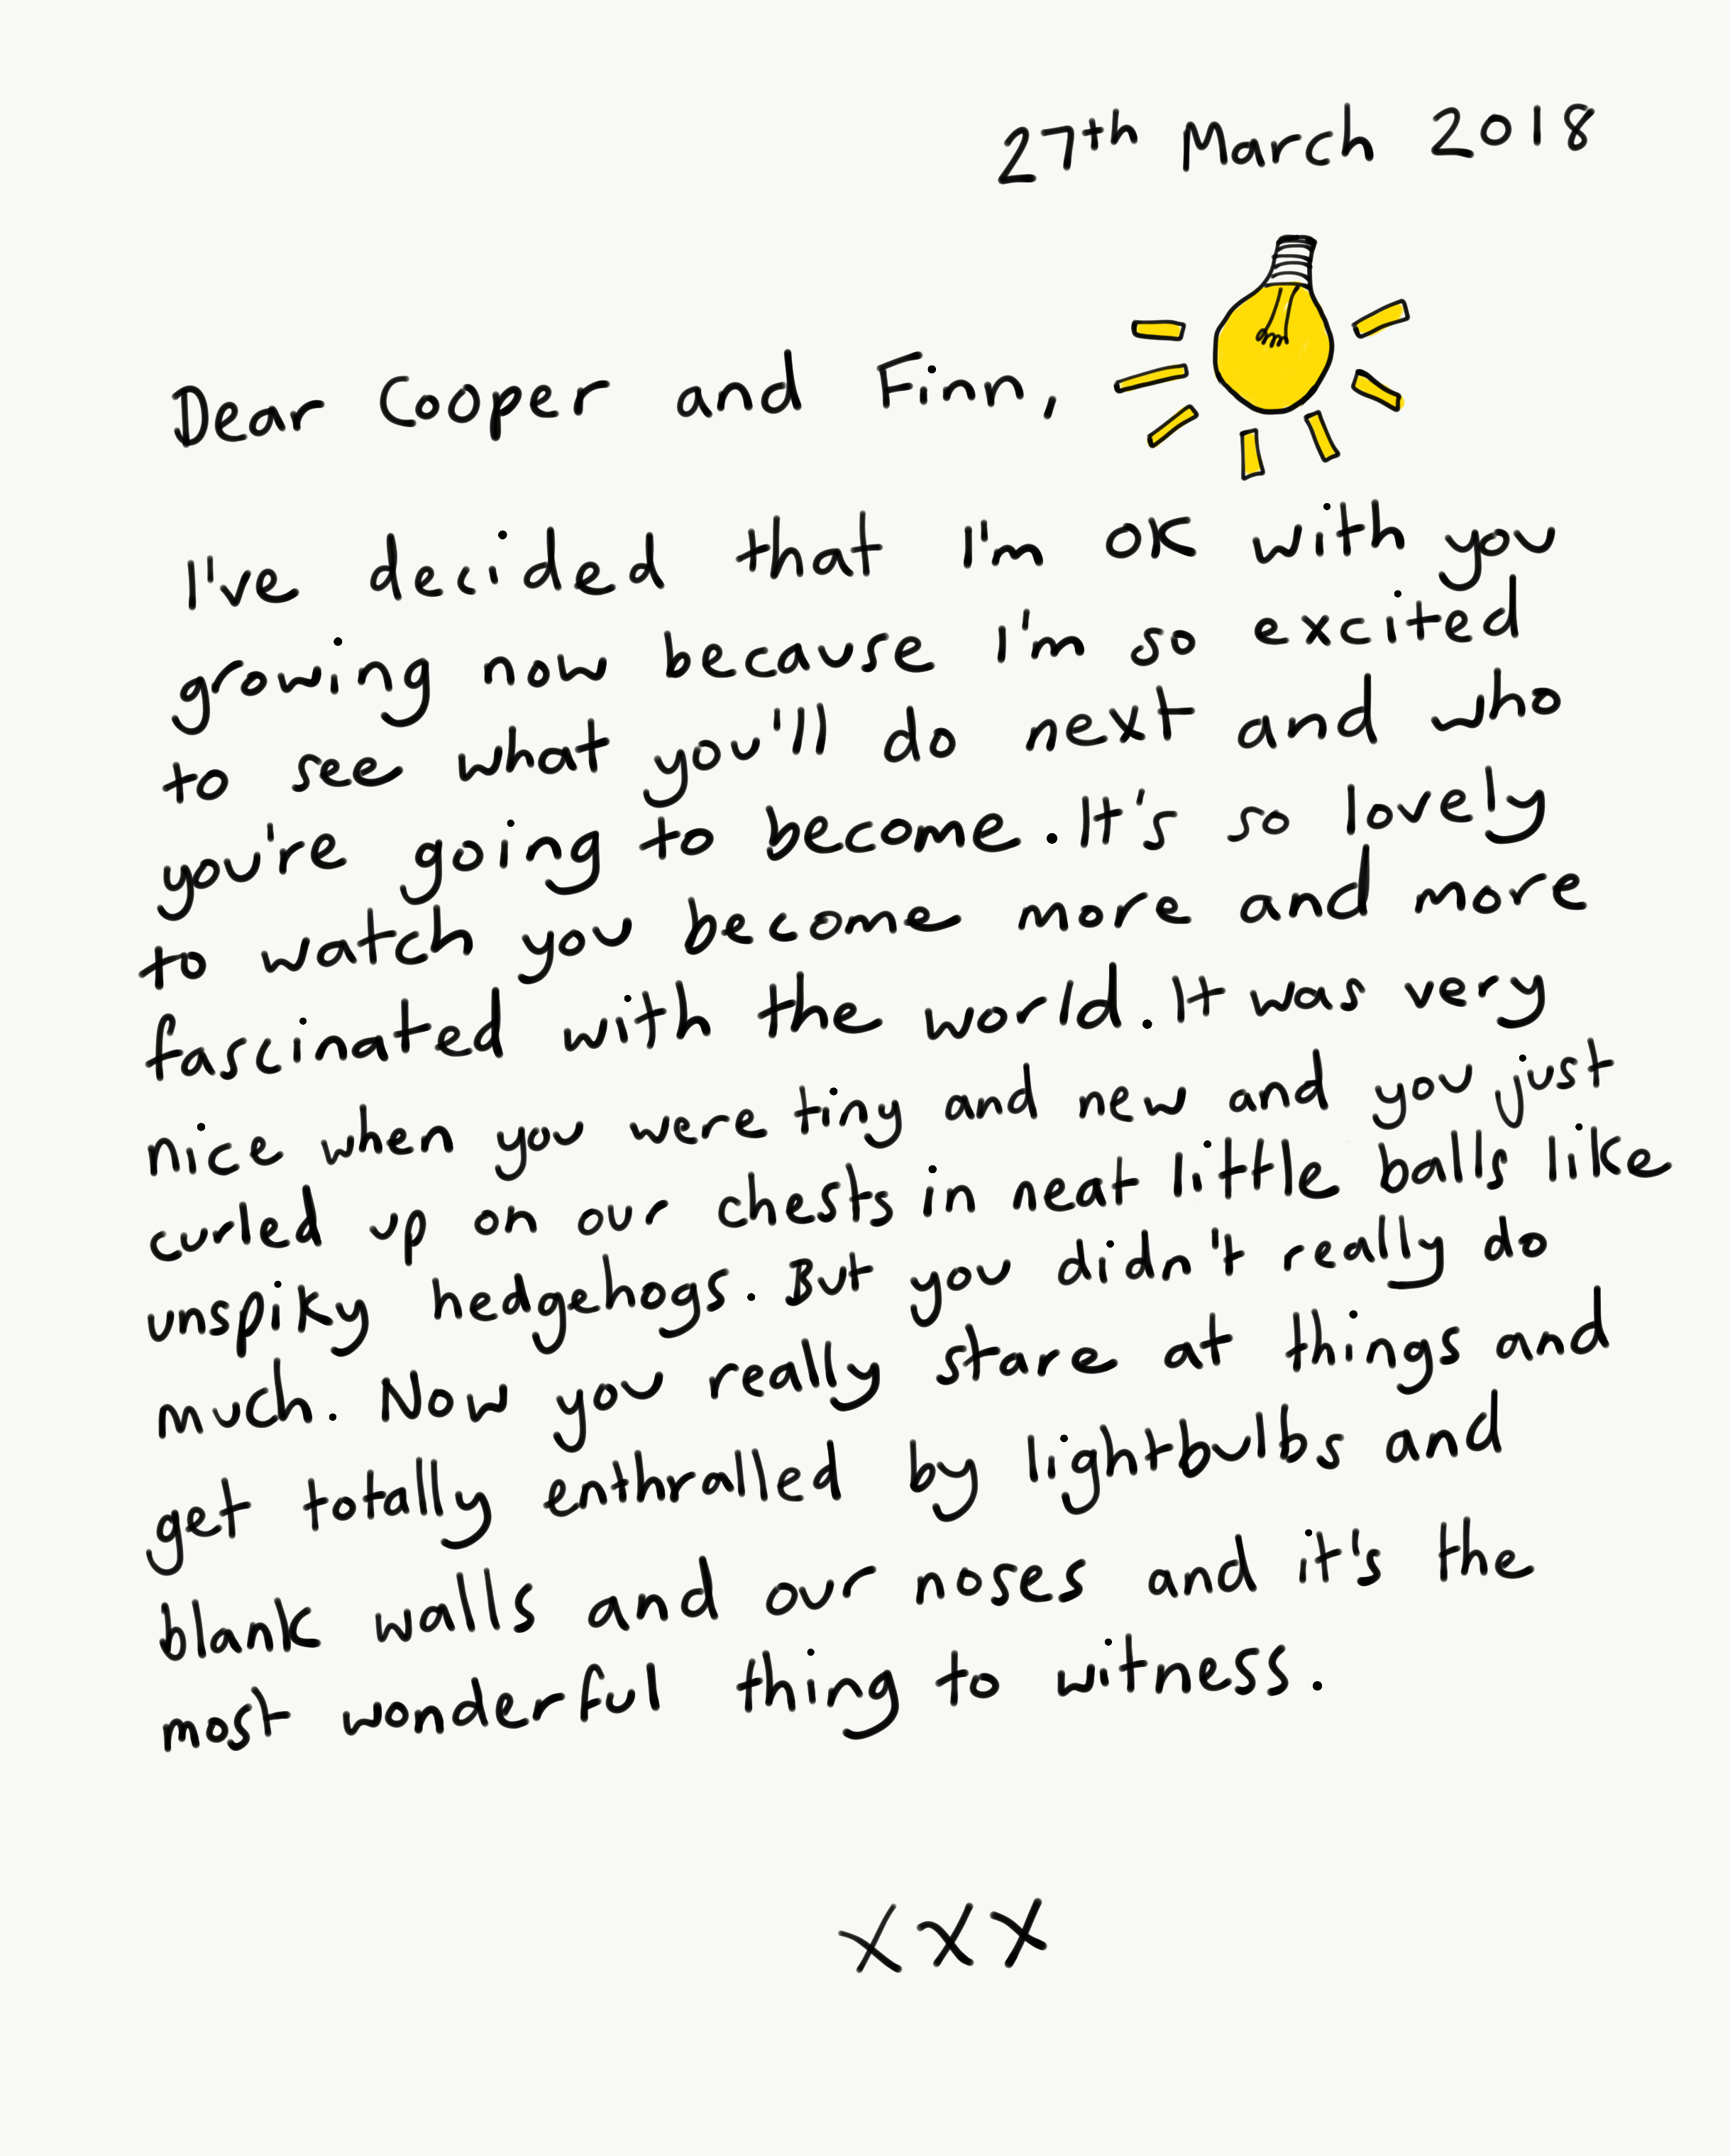 27th March 2018
Dear Cooper and Finn,
I've decided that I'm OK with you
growing now because I'm so excited
to see what you'll do next and who
you're going to become. It's so lovely
to watch you become more and more
fascinated with the world. It was very
nice when you were tiny and new and you just
curled up on our chests in neat little balls like
unspiky hedgehogs. But you didn't really do
much. Now you really stare at things and
get totally enthralled by lightbulbs and
blank walls and our noses and it's the
most wonderful thing to witness.
xxx